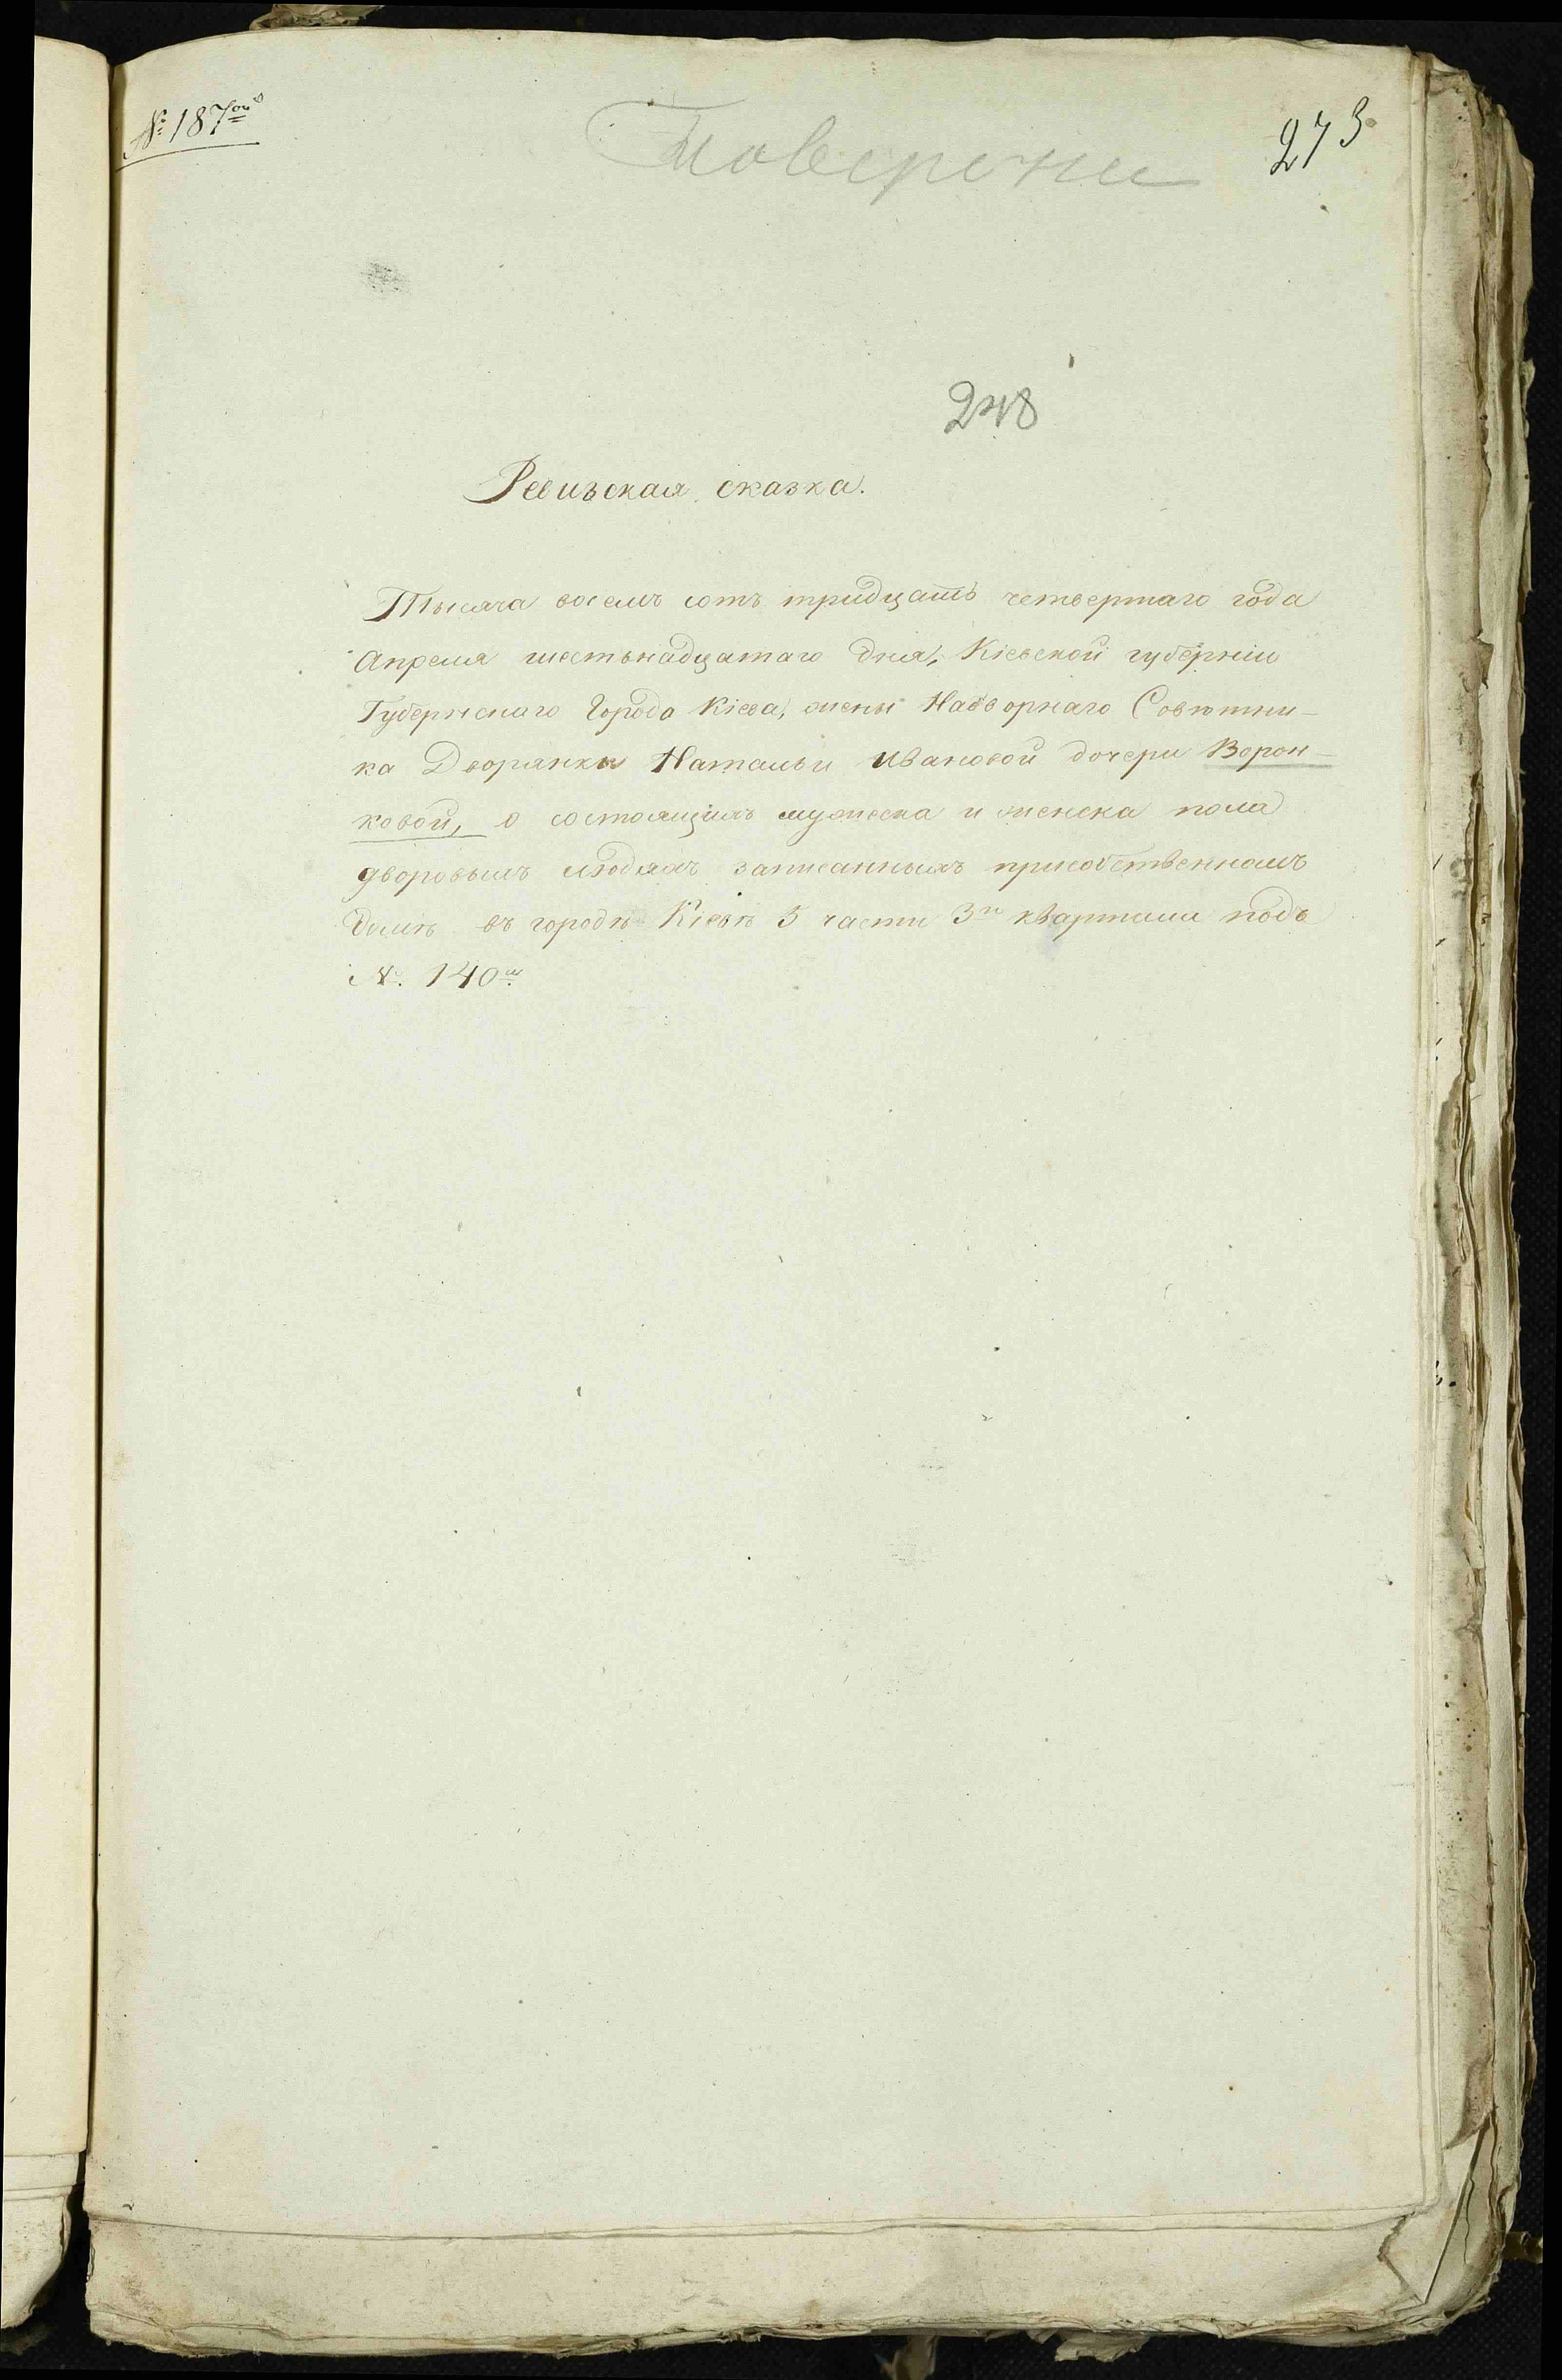 № 187ой
Поверочне
273
248
Ревизская сказка.
Тысяча восемъ сотъ тридцать четвертаго года
Апреля шестьнадцатаго дня, Кіевской губерніи
Губернскаго Города Кіева, жены Надворнаго Совѣтни-
ка Дворянки Натальи Ивановой дочери Ворон-
ковой, о состоящихъ мужеска и женска пола
дворовымъ людяхъ записанныхъ присобственномъ
домѣ въ городѣ Кіевѣ 5 части 3го квартала подъ
№. 140м.